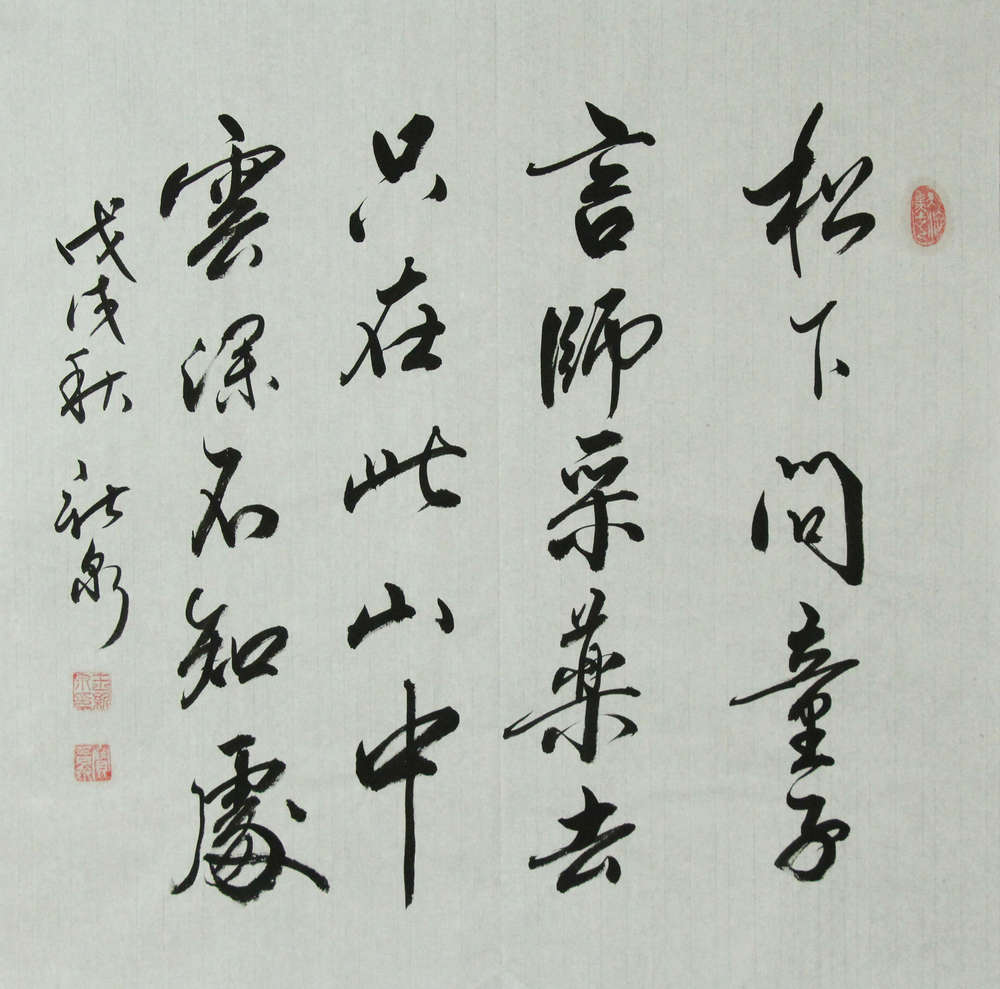 松下問童子
言師采藥去
只在此山中
雲深不知處
戊戌秋 新泉